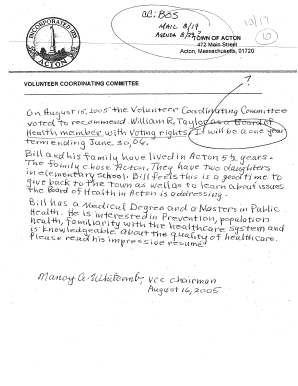 CC: BOS
MAIL 8/19
AGENDA 8/22?
10/17
10
INCORPORATED 1735
ACTON
TOWN OF ACTON
472 Main Street
Acton, Massachusetts, 01720
VOLUNTEER COORDINATING COMMITTEE
?
On August 15, 2005 the Volunteer Coordinating Committee
voted to recommend William R, Taylor as a Board of
Health member with voting rights. It will be a one year
term ending June 30, 06.
Bill and his family have lived in Acton 5½ years.
The family chose Acton, They have two daughters
in elementary school. Bill feels this is a good time to
give back to the Town as well as to learn about issues
the Board of Health in Acton is addressing.
Bill has a Medical Degree and a Masters in Public
Health. He is interested in Prevention, population
health, familiarity with the healthcare system and
is knowledgeable about the quality of healthcare.
Please read his impressive resumé
Nancy A. Whitcomb, VCC Chairman
August 16, 2005